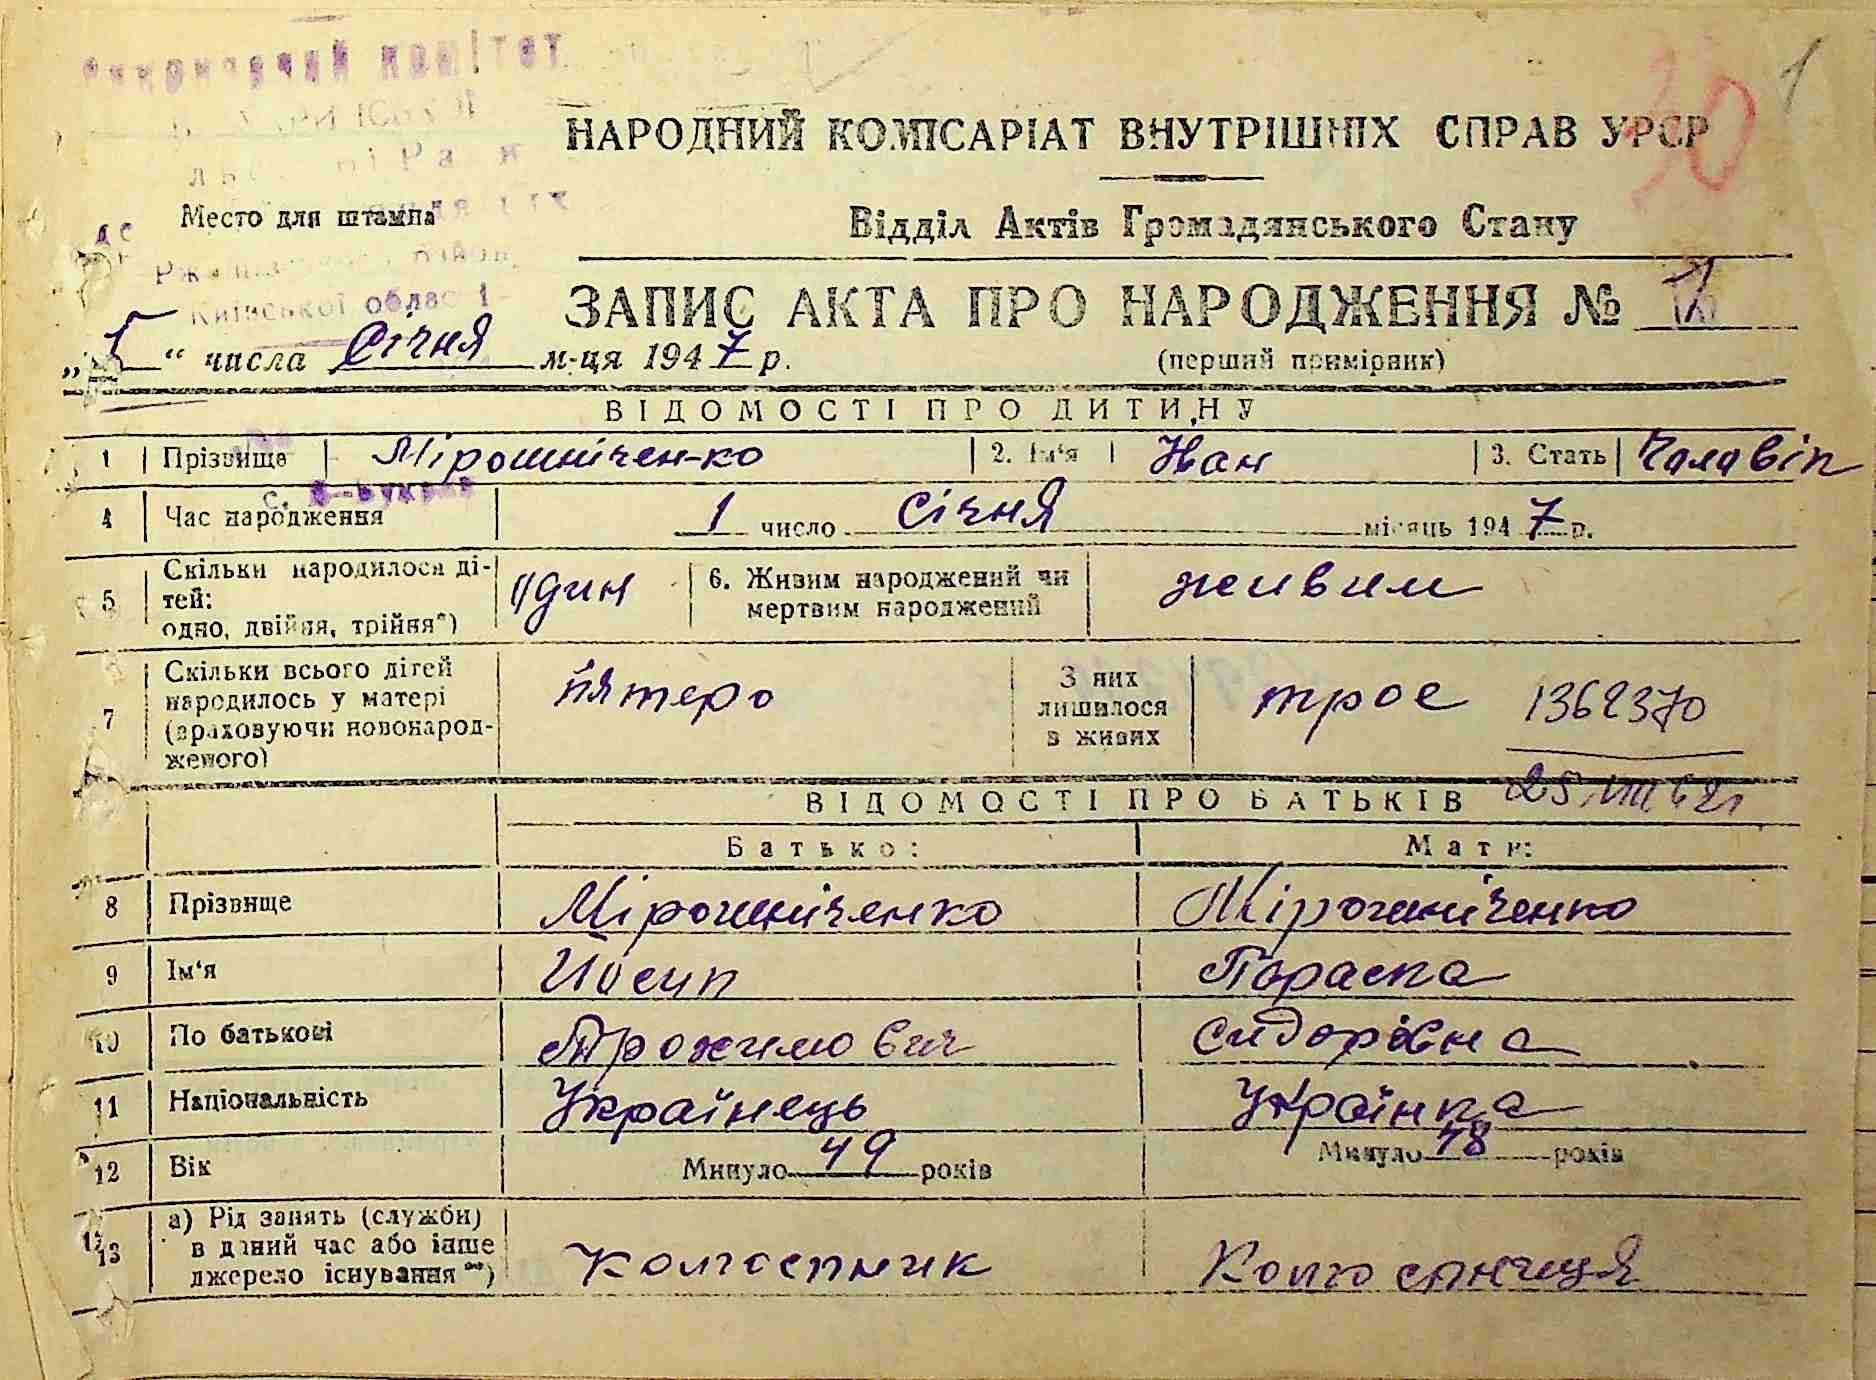 комітет
1
30
НАРОДНИЙ КОМІСАРІАТ ВНУТРІШНІХ СПРАВ УРСР
Место для штампа
Відділ Актів Громадянського Стану
Київської області
ЗАПИС АКТА ПРО НАРОДЖЕННЯ № 1
(перший примірник)
" числа Січня м-ця 1947 р.
ВІДОМОСТІ ПРО ДИТИНУ
1 Прізвище Мірошніченко 2. Ім'я Иван 3. Стать Чоловік
4 Час народження 1 число Січня місяць 1947 р.
5 Скільки народилося ді-
тей:
одно, двійня, трійня*)
один
6. Живим народжений чи
мертвим народжений
живим
7 Скільки всього дітей
народилось у матері
(враховуючи новонарод-
женого)
пятеро
З них
лишилося
в живих
трое
1362370
25 VIII 62 г
ВІДОМОСТІ ПРО БАТЬКІВ
Батько: Мати:
8 Прізвище Мірошніченко Мірошніченко
9 Ім'я Йосип Параска
10 По батькові Трохимович Сидорівна
11 Національність Українець Українка
12 Вік Минуло 49 років Минуло 48 років
13 а) Рід занять (служби)
в даний час або інше
джерело існування**)
Колгоспник Колгоспниця